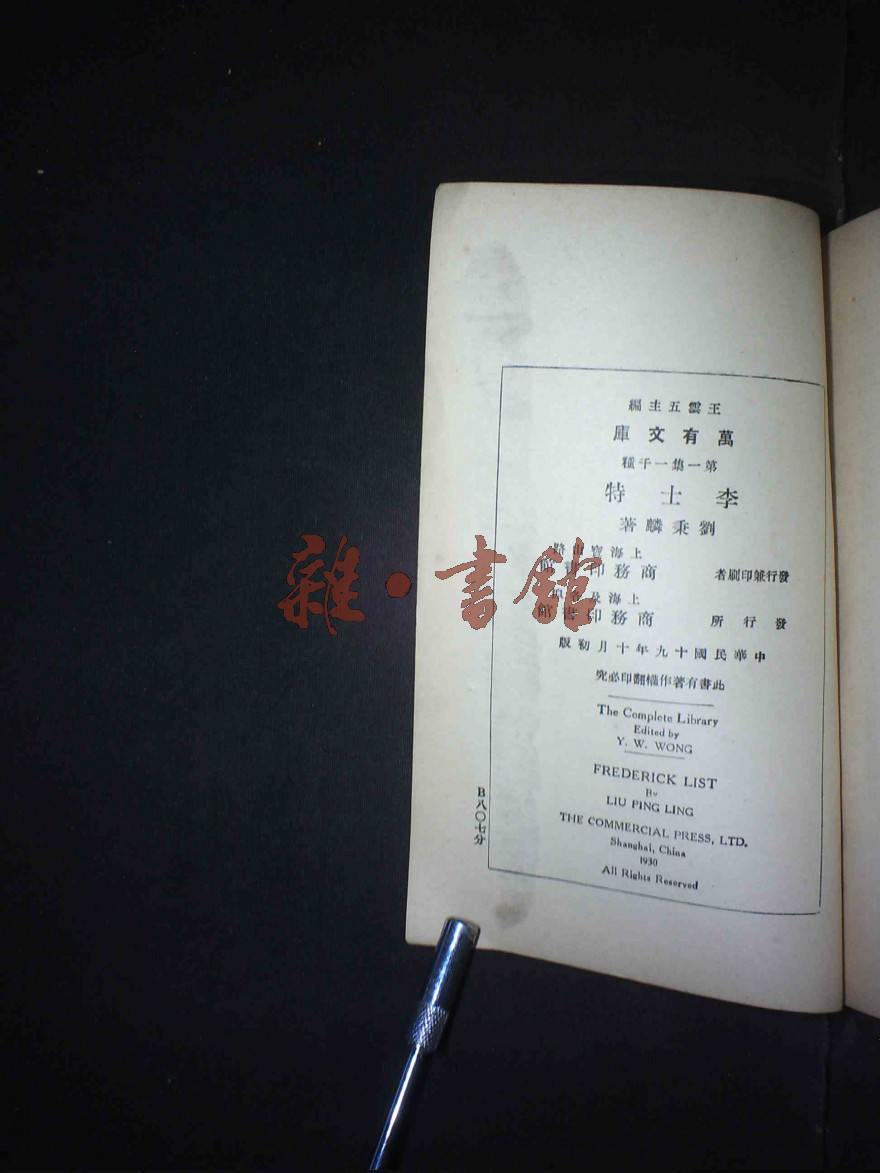 王雲五主編
萬有文庫
第一集一千種
李士特
劉秉麟著
上海寶山路
發行兼印刷者 商務印書館
上海及
發行所 商務印書館
中華民國十九年十月初版
此書有著作權翻印必究
The Complete Library
Edited by
Y. W. WONG
FREDERICK LIST
By
LIU PING LING
THE COMMERCIAL PRESS, LTD.
Shanghai, China
1930
All Rights Reserved
B八〇七分
雜·書館